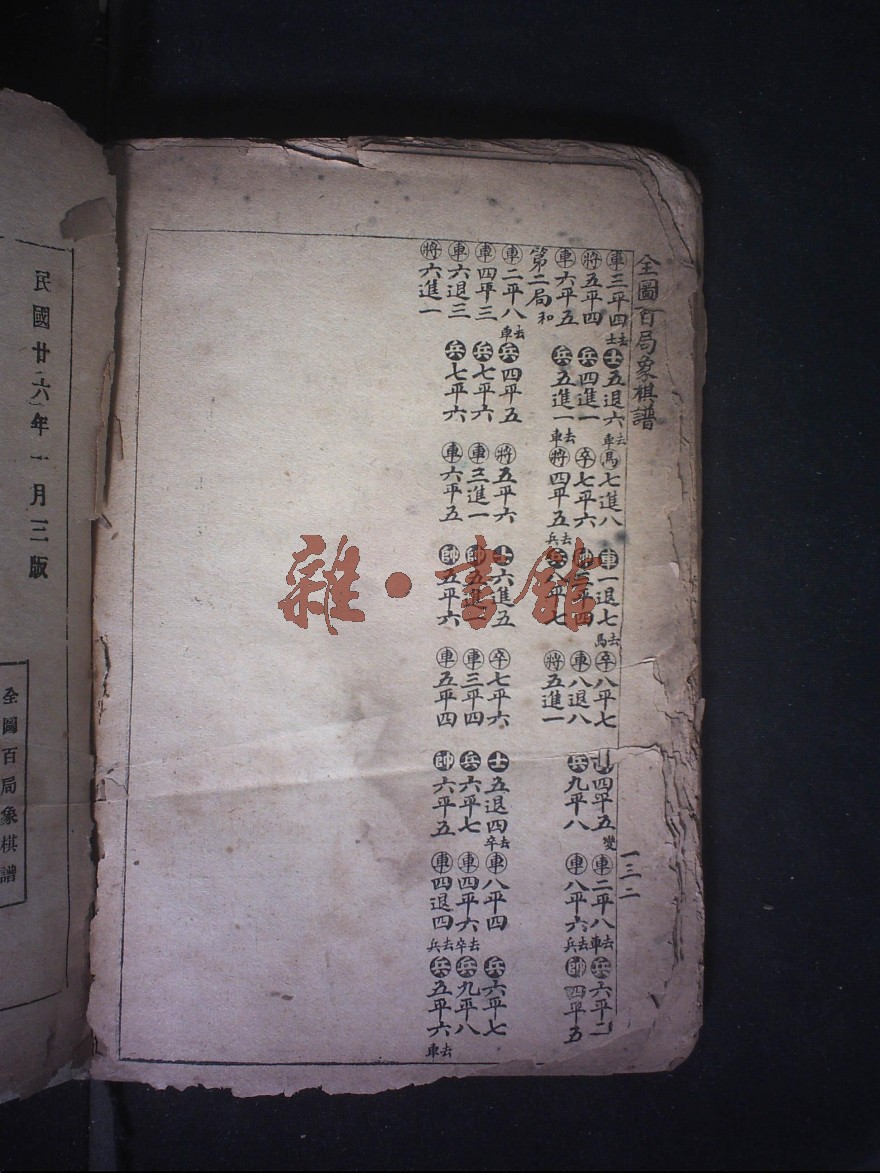 全圖百局象棋譜
一三二
車三平四去士 士五退六去車 馬七進八 車一退七去馬 卒八平七 四平五變 車二平八去車 兵六平二
將五平四 兵四進一 卒七平六 帥平四 車八退八 兵九平八 車八平六去兵 帥四平五
車六平五 兵五進一去車 將四平五去兵 兵八平七 將五進一
第二局 和
車二平八去車 兵四平五 將五平六 士六進五 卒七平六 士五退四去卒 車八平四 兵六平七
車四平三 兵七平六 車三進一 帥五進一 車三平四 兵六平七 車四平六去卒 兵九平八
車六退三 兵七平六 車六平五 帥五平六 車五平四 帥六平五 車四退四去兵 兵五平六去車
將六進一
民國廿六年一月三版
全圖百局象棋譜
雜·書館